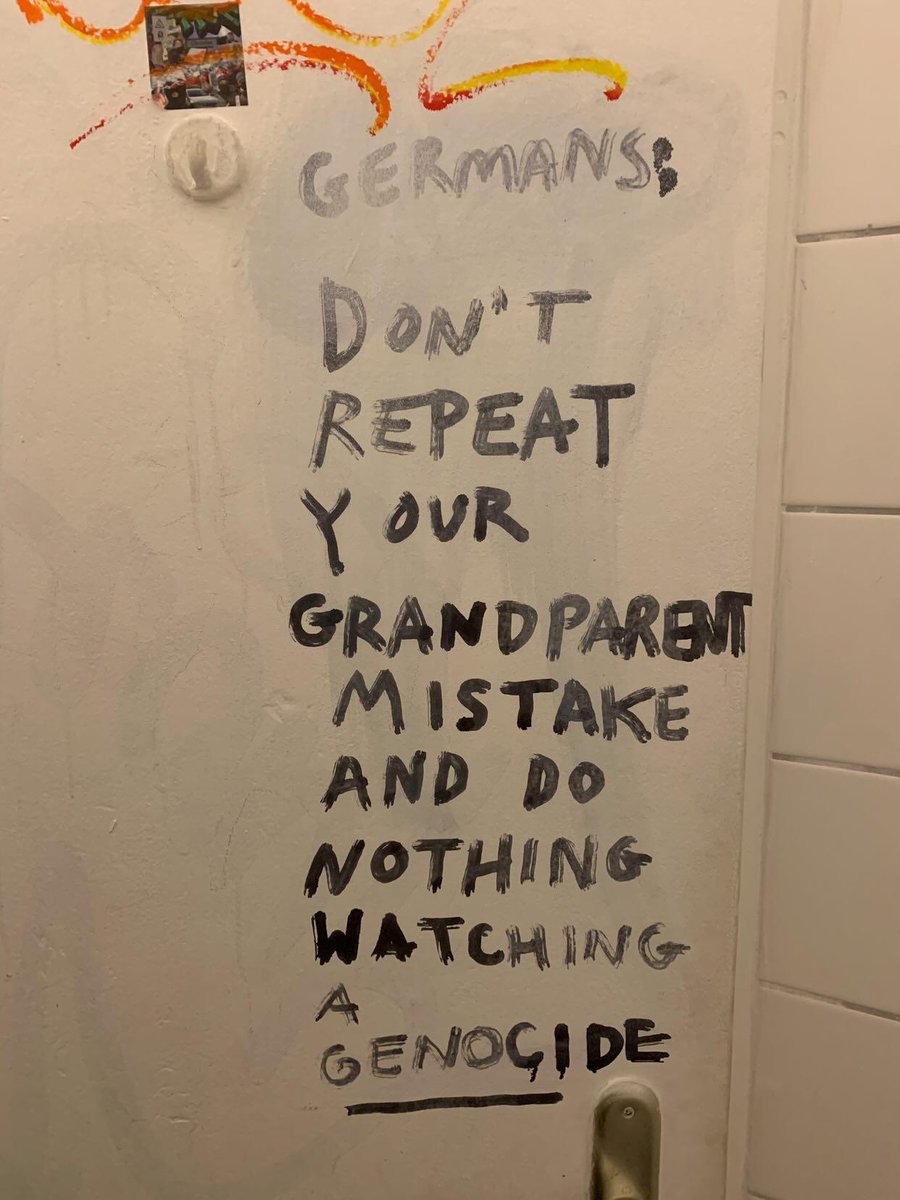 GERMANS:
DON'T
REPEAT
YOUR
GRANDPARENT
MISTAKE
AND DO
NOTHING
WATCHING
A
GENOCIDE